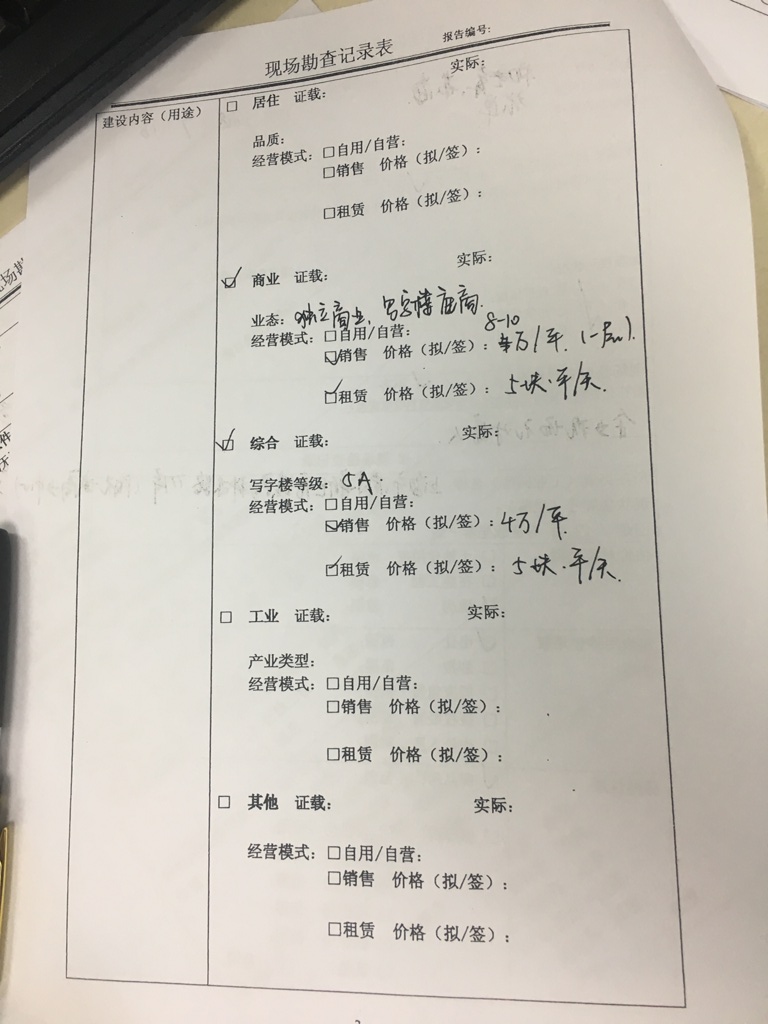 现场勘查记录表
报告编号:
建设内容（用途）
□ 居住 证载: 实际:
品质:
经营模式: □自用/自营:
□销售 价格（拟/签）:
□租赁 价格（拟/签）:
☑ 商业 证载: 实际:
业态: 独立商业, 写字楼底商.
经营模式: □自用/自营:
8-10
☑销售 价格（拟/签）: 万/平. (一层).
☑租赁 价格（拟/签）: 5块·平/天.
☑ 综合 证载: 实际:
写字楼等级: 5A.
经营模式: □自用/自营:
☑销售 价格（拟/签）: 4万/平.
☑租赁 价格（拟/签）: 5块·平/天.
□ 工业 证载: 实际:
产业类型:
经营模式: □自用/自营:
□销售 价格（拟/签）:
□租赁 价格（拟/签）:
□ 其他 证载: 实际:
经营模式: □自用/自营:
□销售 价格（拟/签）:
□租赁 价格（拟/签）: